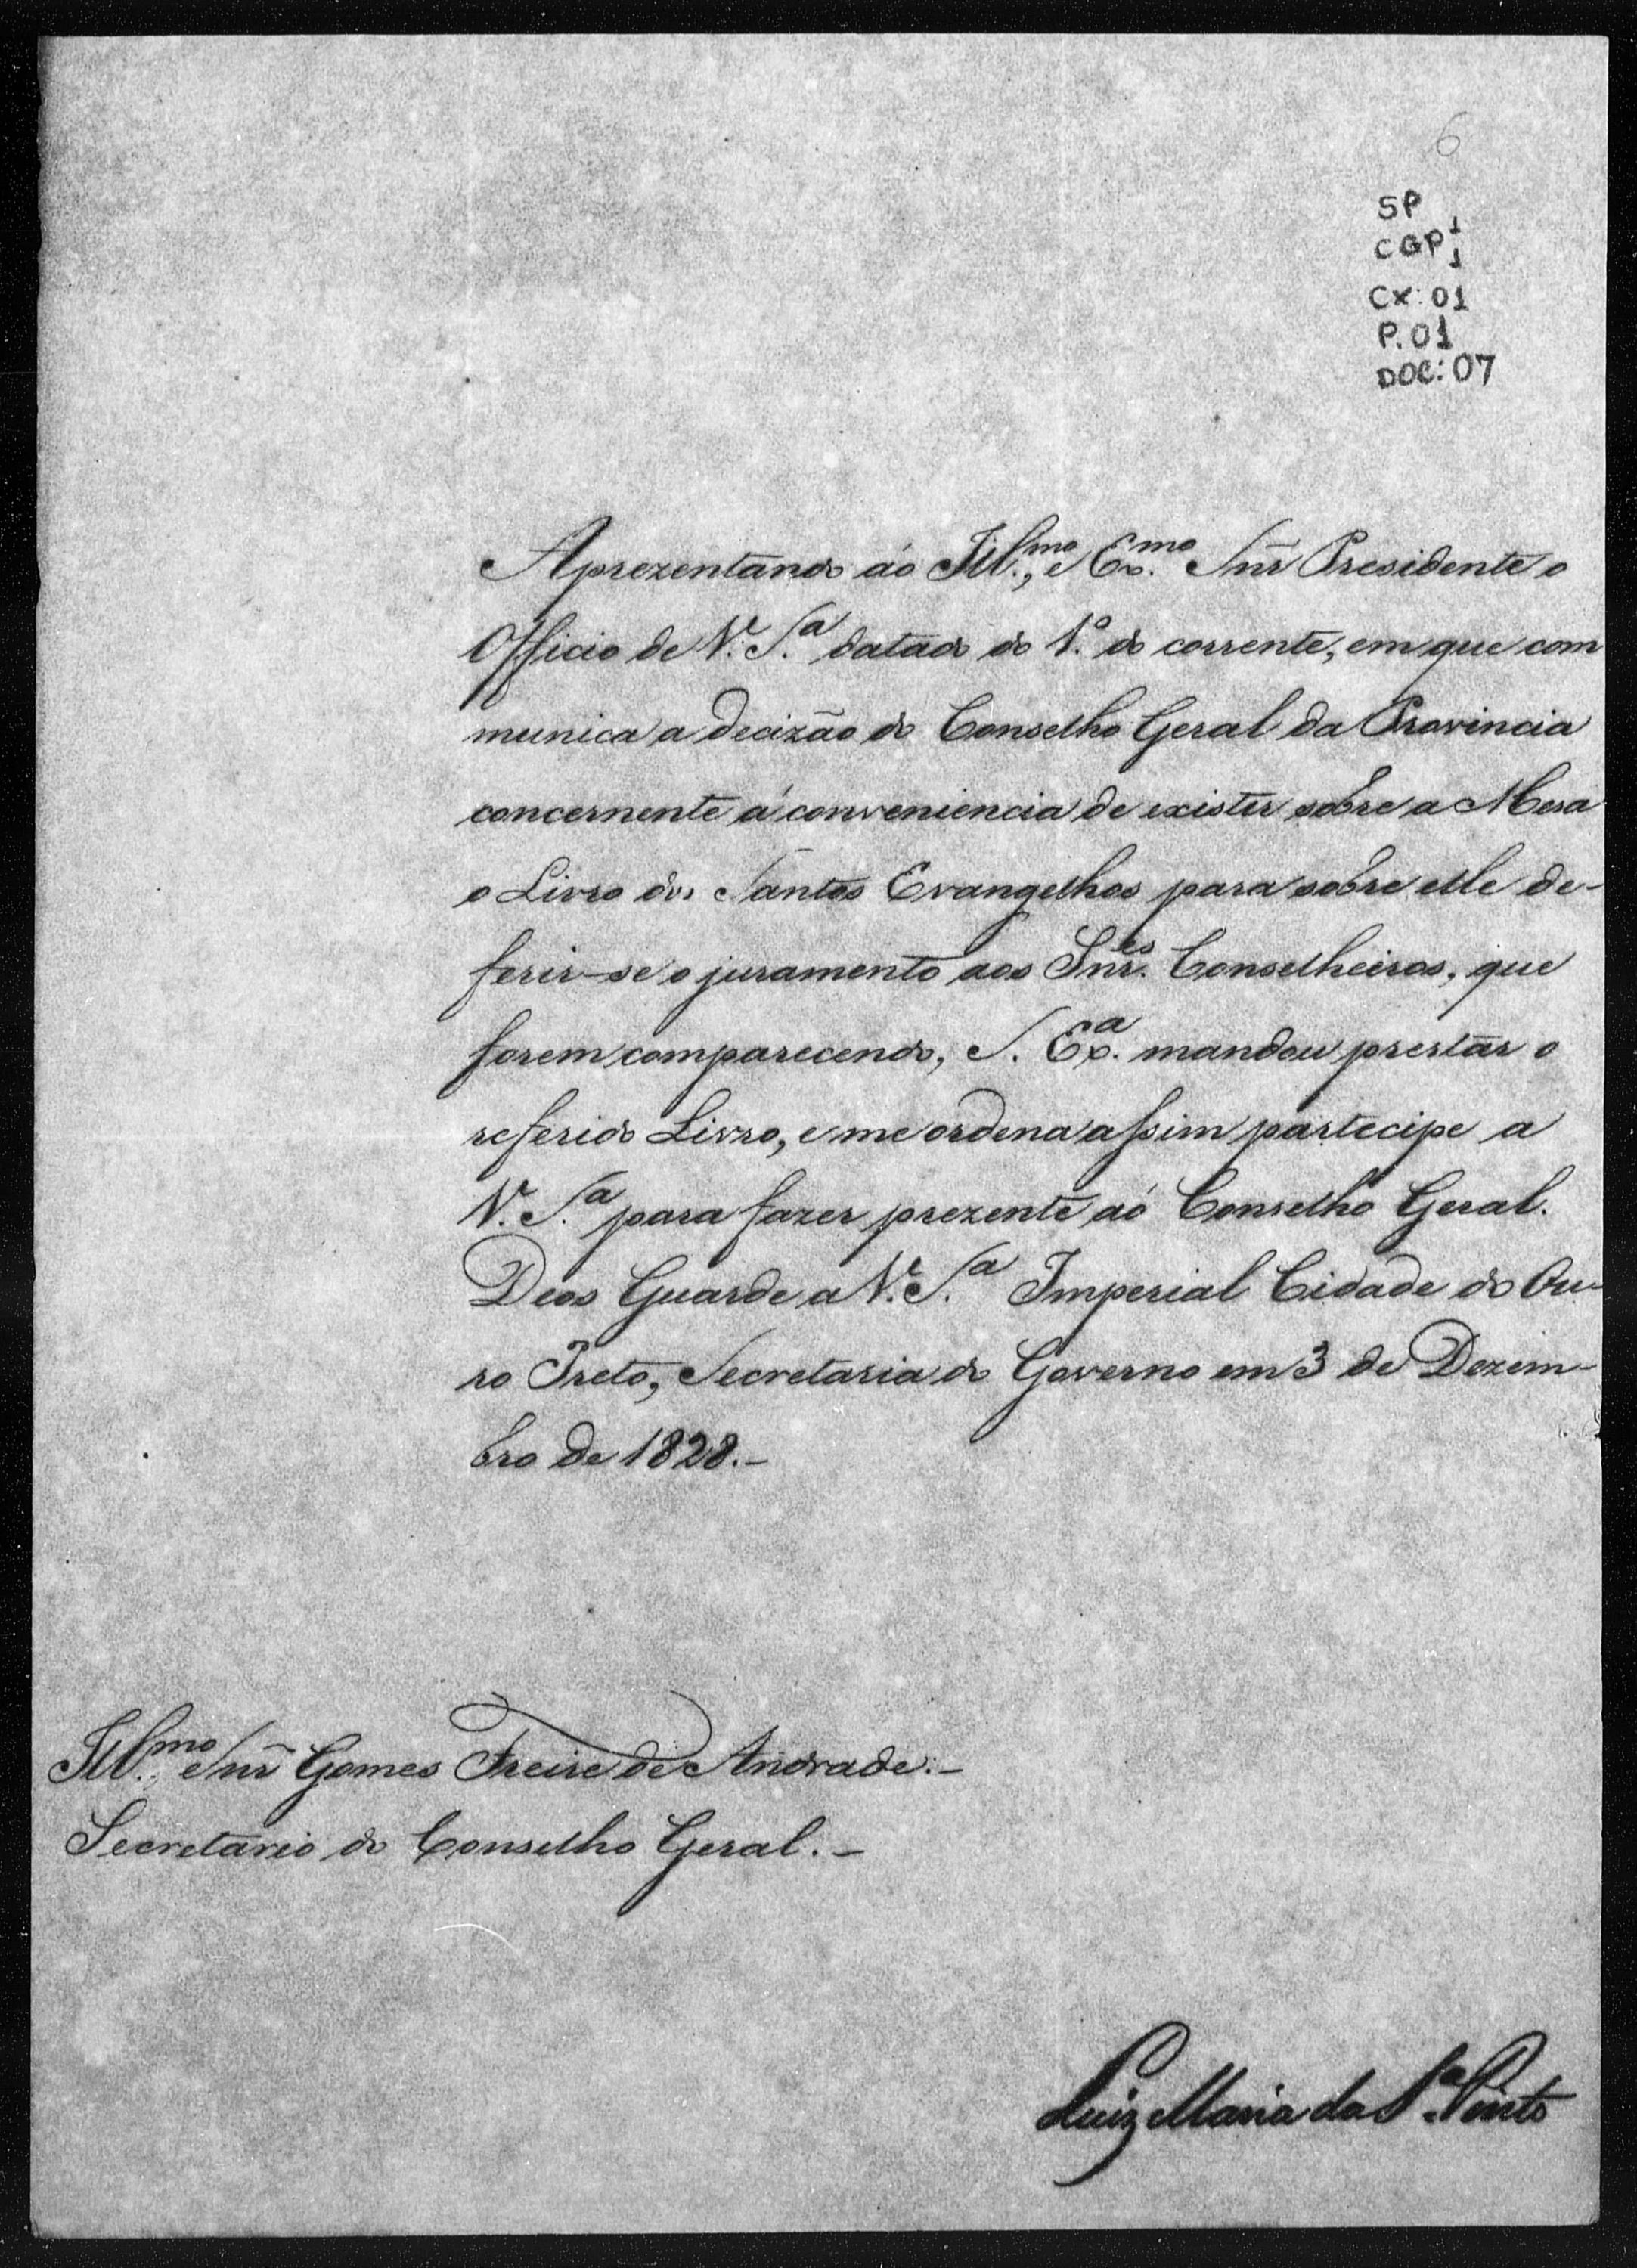 6
SP
CGP 1/1
CX: 01
P. 01
DOC: 07
Aprezentando áo Ill.mo, e Ex.mo Snr̃ Presidente o
Officio de V. S.a datado do 1.o do corrente, em que com
munica a decizão do Conselho Geral da Provincia
concernente á conveniencia de existir sobre a Mesa
o Livro dos Santos Evangelhos para sobre elle de-
ferir-se o juramento aos Snr.es Conselheiros, que
forem comparecendo, S. Ex.a mandou prestar o
referido Livro, e me ordena assim partecipe a
V. S.a para fazer prezente áo Conselho Geral.
Deos Guarde a V. S.a Imperial Cidade do Ou-
ro Preto, Secretaria do Governo em 3 de Dezem-
bro de 1828.-
Ill.mo Snr̃ Gomes Freire de Andrade.-
Secretario do Conselho Geral.-
Luiz Maria da S.a Pinto